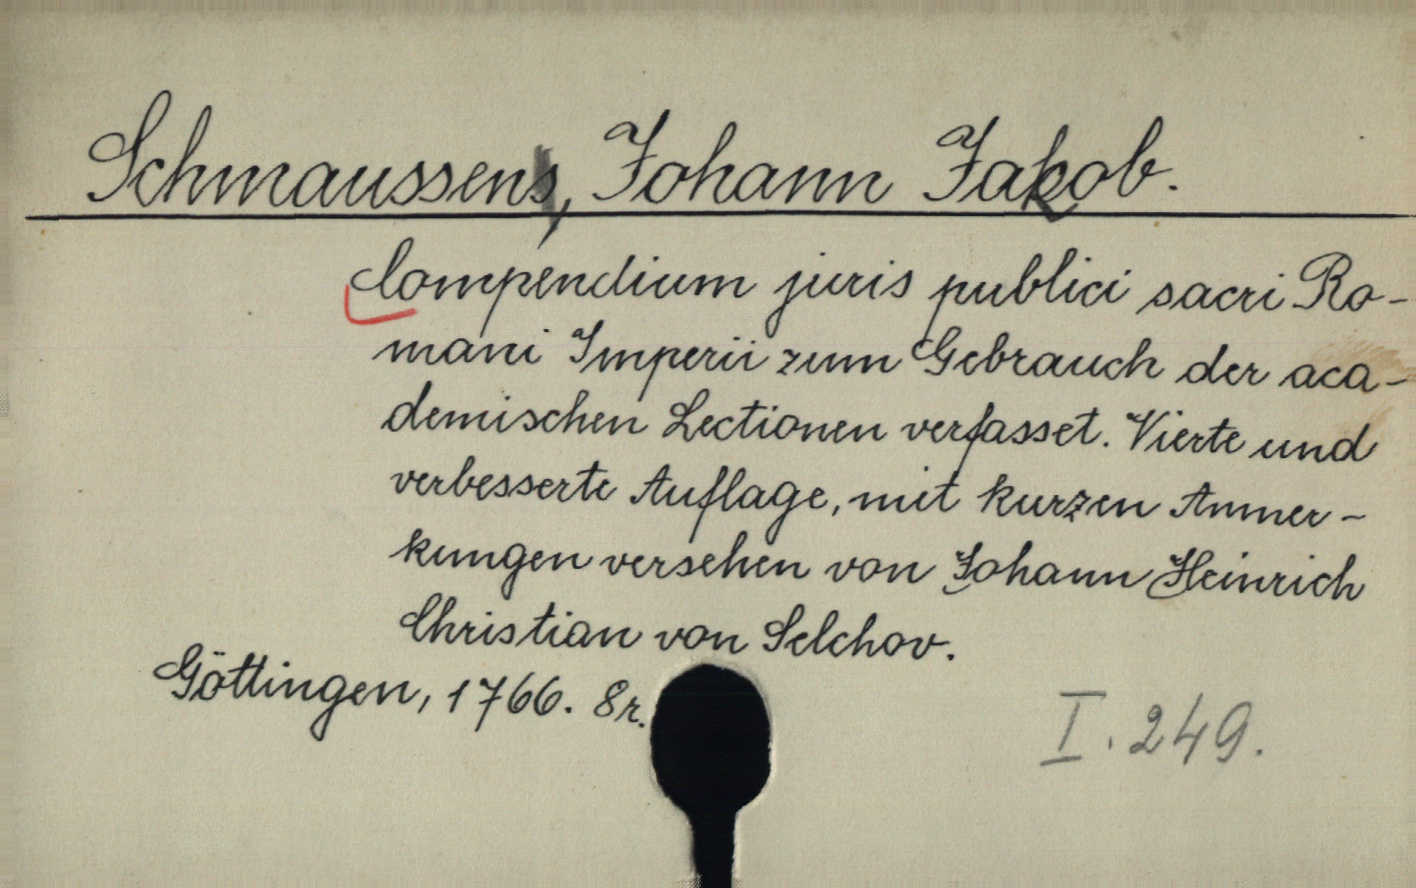 Schmaussen, Johann Jakob.
Compendium juris publici sacri Ro-
mani Imperii zum Gebrauch der aca-
demischen Lectionen verfasset. Vierte und
verbesserte Auflage, mit kurzen Anmer-
kungen versehen von Johann Heinrich
Christian von Selchov.
Göttingen, 1766. 8r.
I. 249.